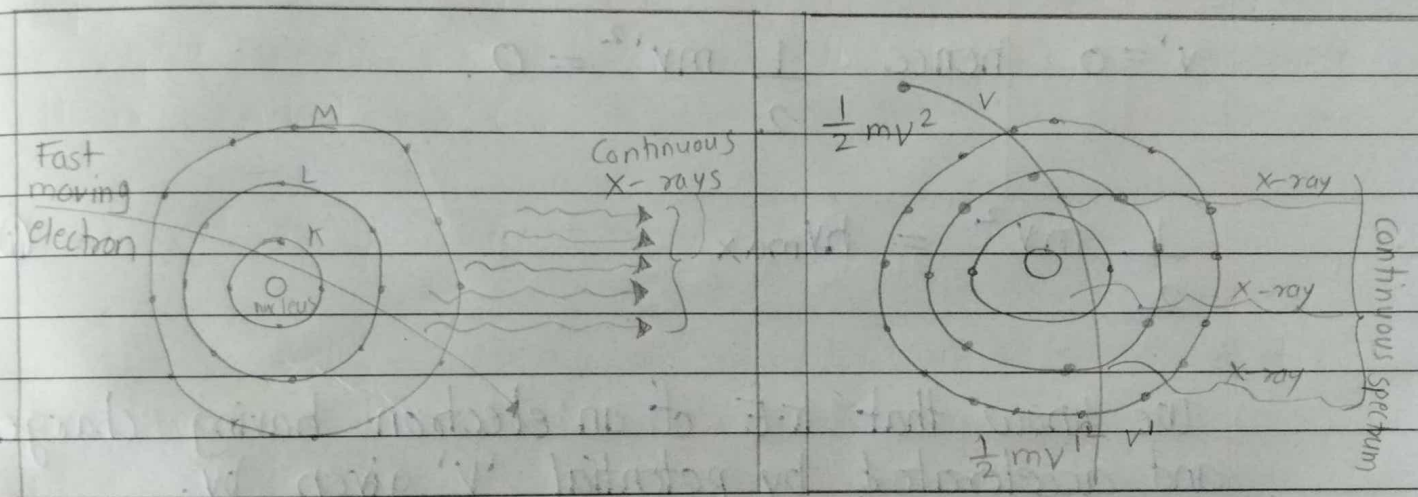 M
Fast
moving
electron
L
K
nucleus
Continuous
X-rays
V
1/2 mv²
X-ray
X-ray
X-ray
Continuous spectrum
1/2 mv'² v'